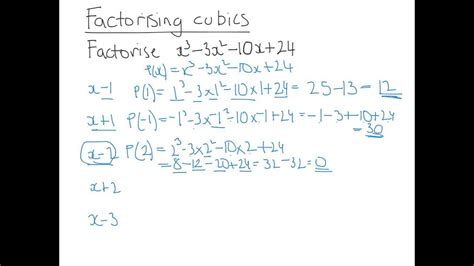 Factorising cubics
Factorise x³-3x²-10x+24
P(x) = x³-3x²-10x+24
x-1 P(1) = 1³-3x1²-10x1+24 = 25-13 = 12
x+1 P(-1) = -1³-3x-1²-10x-1+24 = -1-3+10+24
= 30
x-2 P(2) = 2³-3x2²-10x2+24
= 8-12-20+24 = 32-32 = 0
x+2
x-3